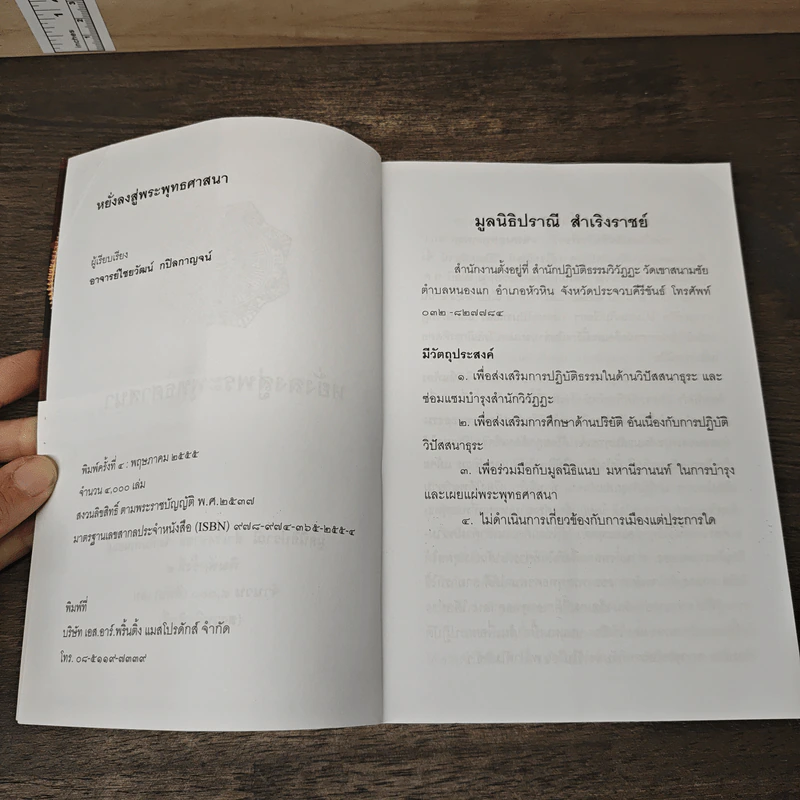 หยั่งลงสู่พระพุทธศาสนา
ผู้เรียบเรียง
อาจารย์ไชยวัฒน์ กปิลกาญจน์
พิมพ์ครั้งที่ ๔ : พฤษภาคม ๒๕๕๕
จำนวน ๔,๐๐๐ เล่ม
สงวนลิขสิทธิ์ ตามพระราชบัญญัติ พ.ศ.๒๕๓๗
มาตรฐานเลขสากลประจำหนังสือ (ISBN) ๙๗๘-๙๗๔-๓๖๕-๒๕๕-๔
พิมพ์ที่
บริษัท เอส.อาร์.พริ้นติ้ง แมสโปรดักส์ จำกัด
โทร. ๐๘-๕๑๑๙-๗๓๓๙
มูลนิธิปราณี สำเริงราชย์
สำนักงานตั้งอยู่ที่ สำนักปฏิบัติธรรมวิวัฏฏะ วัดเขาสนามชัย
ตำบลหนองแก อำเภอหัวหิน จังหวัดประจวบคีรีขันธ์ โทรศัพท์
๐๓๒ -๘๒๗๗๘๔
มีวัตถุประสงค์
๑. เพื่อส่งเสริมการปฏิบัติธรรมในด้านวิปัสสนาธุระ และ
ซ่อมแซมบำรุงสำนักวิวัฏฏะ
๒. เพื่อส่งเสริมการศึกษาด้านปริยัติ อันเนื่องกับการปฏิบัติ
วิปัสสนาธุระ
๓. เพื่อร่วมมือกับมูลนิธิแนบ มหานีรานนท์ ในการบำรุง
และเผยแผ่พระพุทธศาสนา
๔. ไม่ดำเนินการเกี่ยวข้องกับการเมืองแต่ประการใด
inches